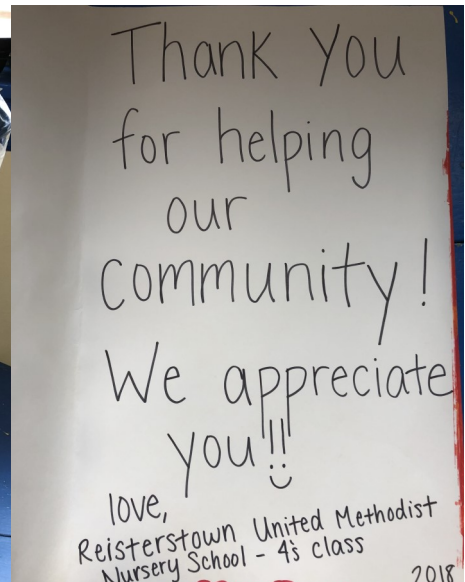 Thank You
for helping
our
community!
We appreciate
you!!!
love,
Reisterstown United Methodist
Nursery School - 4's class
2018